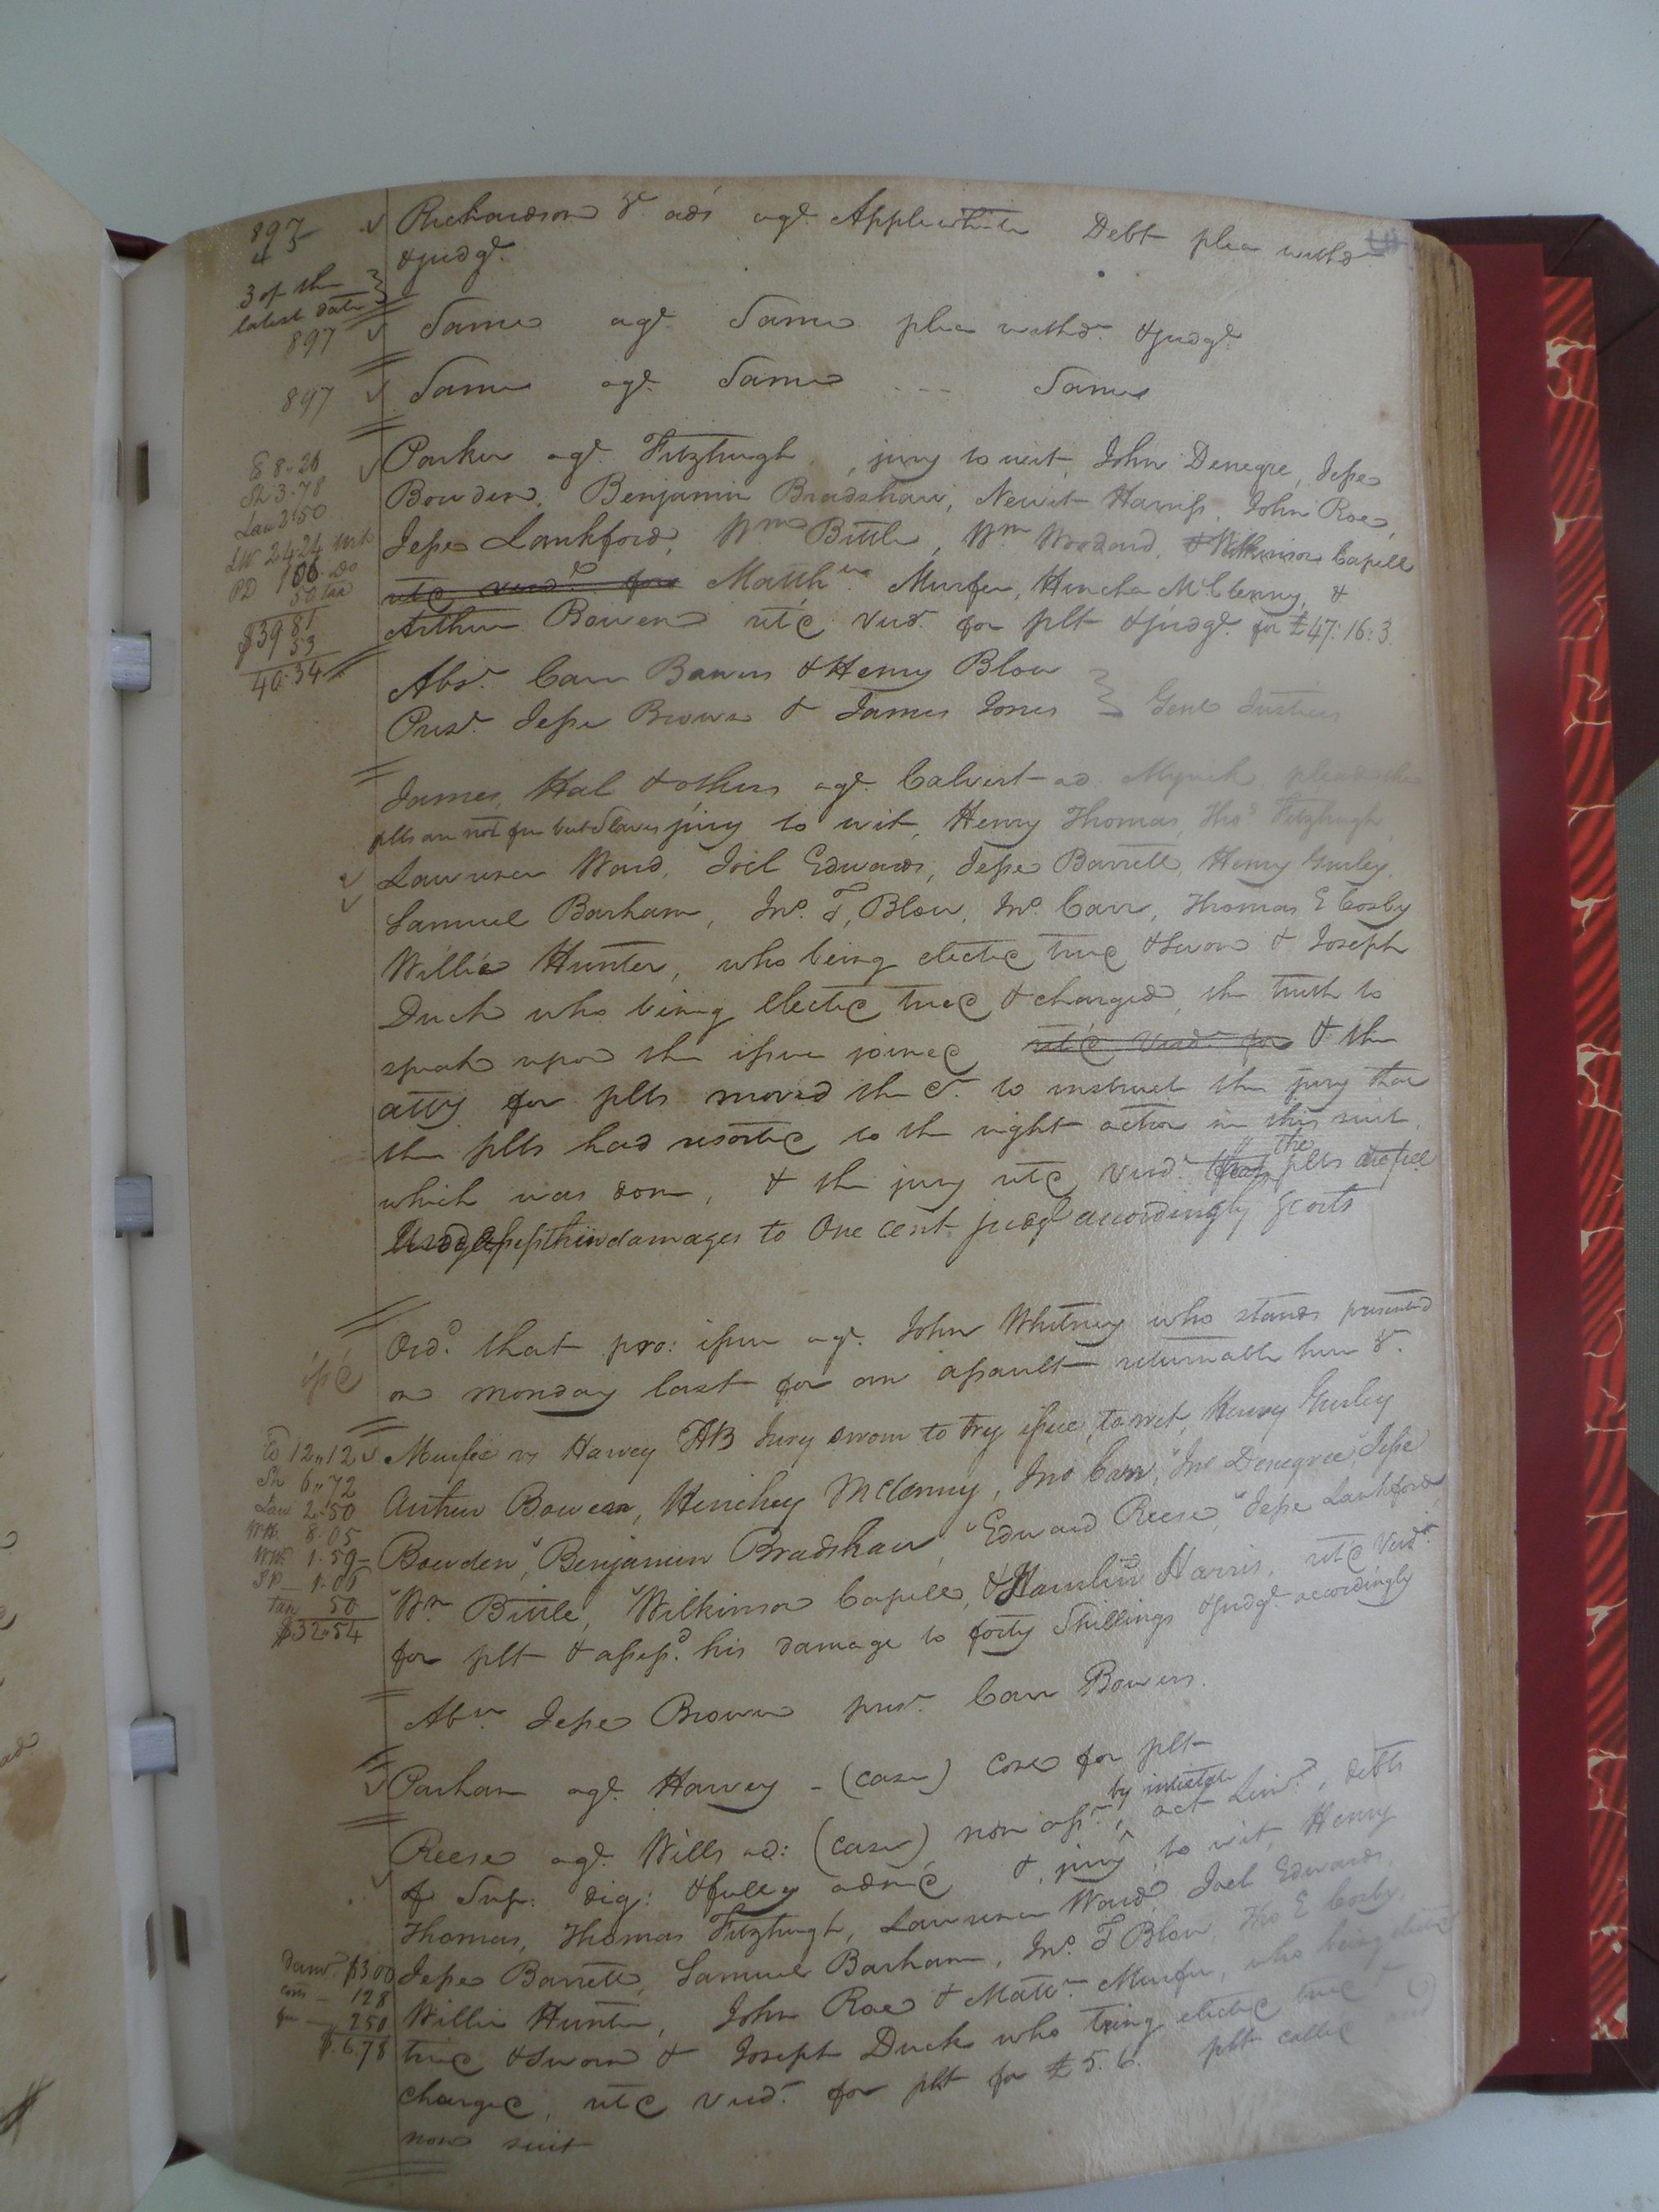 897
45
3 of the
latest date
Richardson &c. ads agt. Applewhite Debt plea withd.
& judgt.
897 Same agt. Same plea withd. & judgt.
897 Same agt. Same --- Same
C 8.26
Sh 3.78
Law 2.50
LW 24 24
PD 1 06 Do
50 tax
$39 81
53
40.34
Parker agt. Fitzhugh, jury to wit, John Denegre, Jesse
Bowden, Benjamin Bradshaw, Newit Harriss, John Roe,
Jesse Lankford, Wm. Bittle, Wm Woodard, & Wilkinson Capell
retd verdt. for Matthew Murfee, Hincha McClenny, &
Arthur Bowen retd verd. for plt & judgt. for £47:16:3.
Abst. Carr Bowers & Henry Blow
Prest. Jesse Browne & James Jones } Gent Justices
James, Hal & others agt. Calvert ad. Myrick pleads the
plts are not free but Slaves jury to wit, Henry Thomas, Thos Fitzhugh,
Lawrence Ward, Joel Edwards, Jesse Barrett, Henry Gurley,
Samuel Barham, Jno. T, Blow, Jno. Carr, Thomas E Cosby
Willie Hunter, who being elected tried & sworn & Joseph
Duck who being Elected tried & charged, the truth to
speak upon the issue joined retd verdt. for & the
atty for plts moved the Ct. to instruct the jury that
the plts had resorted to the right action in this suit,
which was done, & the jury retd verdt. the plts are free
& assess their damages to One cent judgt. accordingly & costs
issd
Ord. that pro: issue agt. John Whitney who stands presented
on monday last for an assault returnable here &c.
C 12"12
Sh 6"72
Law 2"50
8.05
1.59
1.06
tax 50
$32"54
Murfee vs Harvey TAB Jury sworn to try issue, to wit, Henry Gurley
Arthur Bowen, Hinchey McClenny, Jno Carr, Jno Denegree, Jesse
Bowden, Benjamin Bradshaw, Edward Reese, Jesse Lankford,
Wm Bittle, Wilkinson Capell, & Hamlin Harris, retd verdt.
for plt & assessd. his damage to forty Shillings & judgt. accordingly
Abst. Jesse Browne prest. Carr Bowers.
Parham agt. Harvey - (case) Cond for plt
Reese agt. Wills ad: (case) non asst. by intestate, act Limt., debts
of Sup: dig: & fully admd & jury, to wit, Henry
Thomas, Thomas Fitzhugh, Lawrence Ward, Joel Edwards,
dam $3.00
costs - 128
fee - 250
$.6.78
Jesse Barrett, Samuel Barham, Jno. T Blow, Tho E Cosby,
Willie Hunter, John Roe & Mattw. Murfee, who being elected
tried & sworn & Joseph Duck who being elected tried &
charged, retd verdt. for plt for £5.6. plt called and
non suit